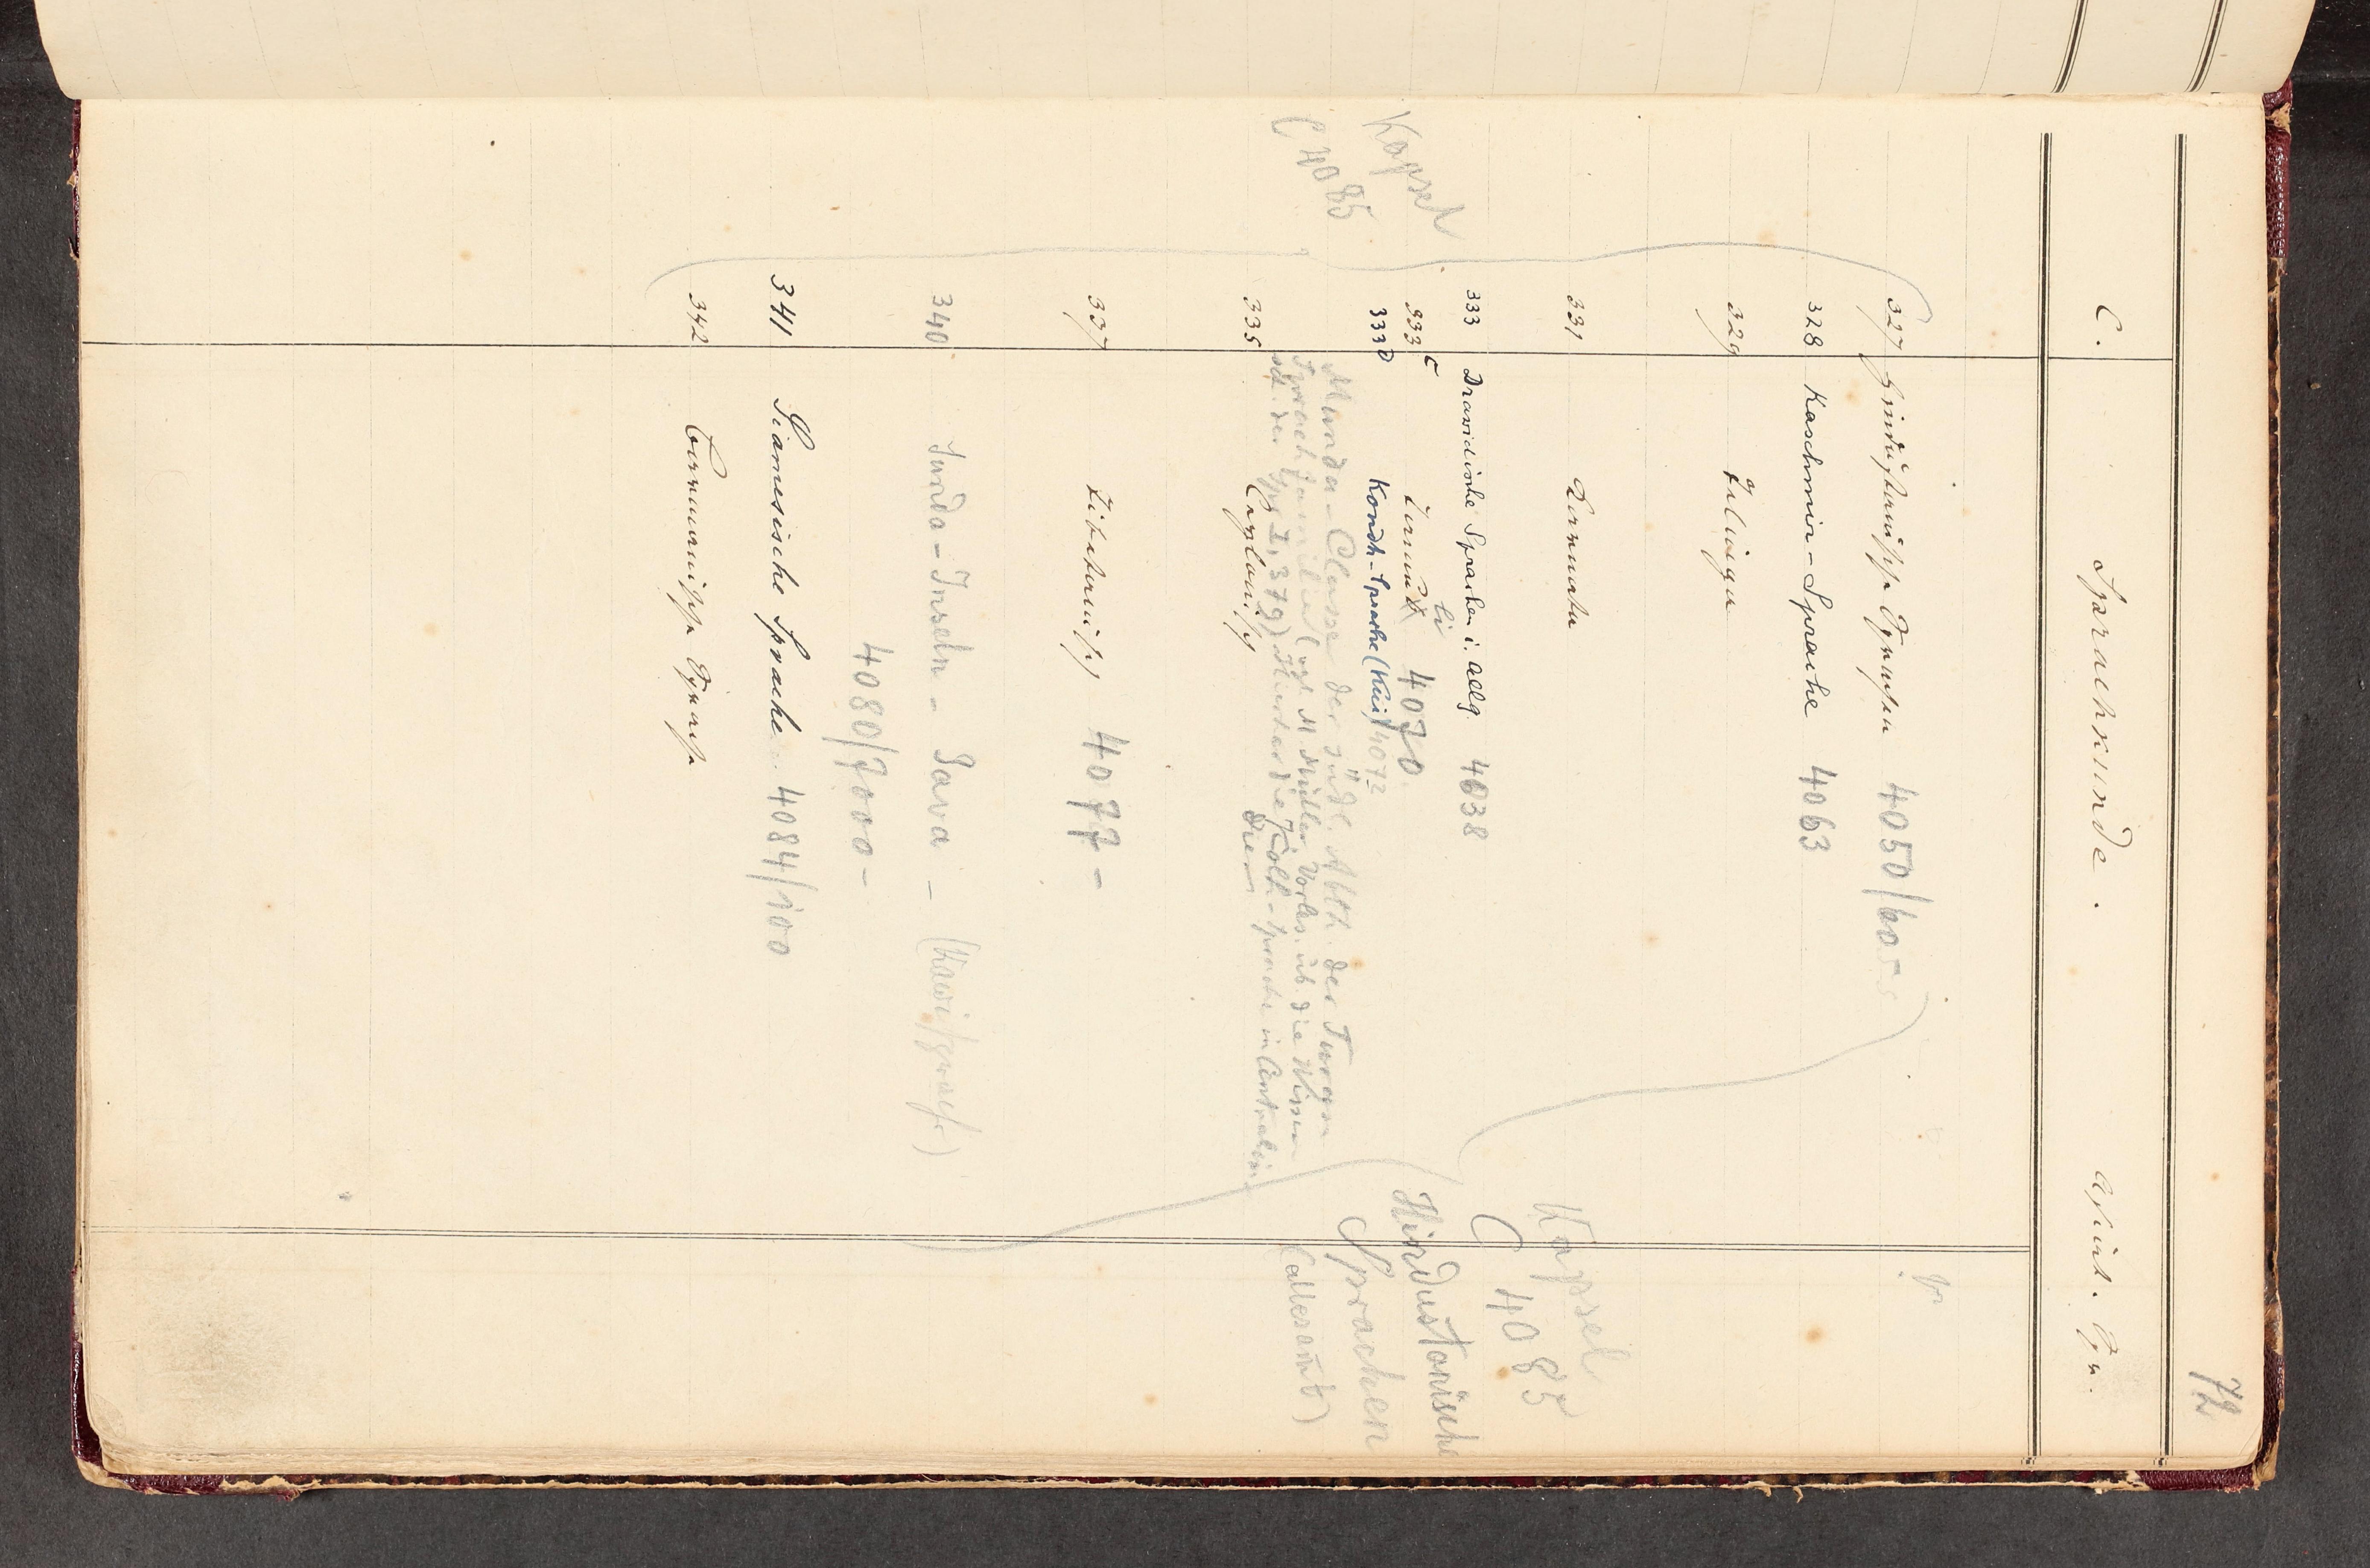 72
C. Sprachkunde. Asiat. Spr.
327 Hindustanische Sprachen 4050/60
328 Kaschmir-Sprache 4063
329 Telinga
331 Karnata
333 Drawidische Sprachen i. Allg. 4038
333 c Tamuli 4070
333 D Kondh-Sprache (Kui) 4072
Munda-Classe der südl. Abth. der Turan
Sprachfamilien (vgl. M. Müller Vorles. üb die Wissen
sch. der Spr I, 379) Hierher die Kolh-Sprache in Centralin
dien
335 Ceylonisch
337 Tibetanisch 4077 -
340 Sunda-Inseln - Java - (Kawisprache)
4080/7000 -
341 Siamesische Sprache 4084/100
342 Birmanische Sprache
Kapsel
C 4085
Kapsel
C 4085
Hindustanische
Sprachen
(allesamt)